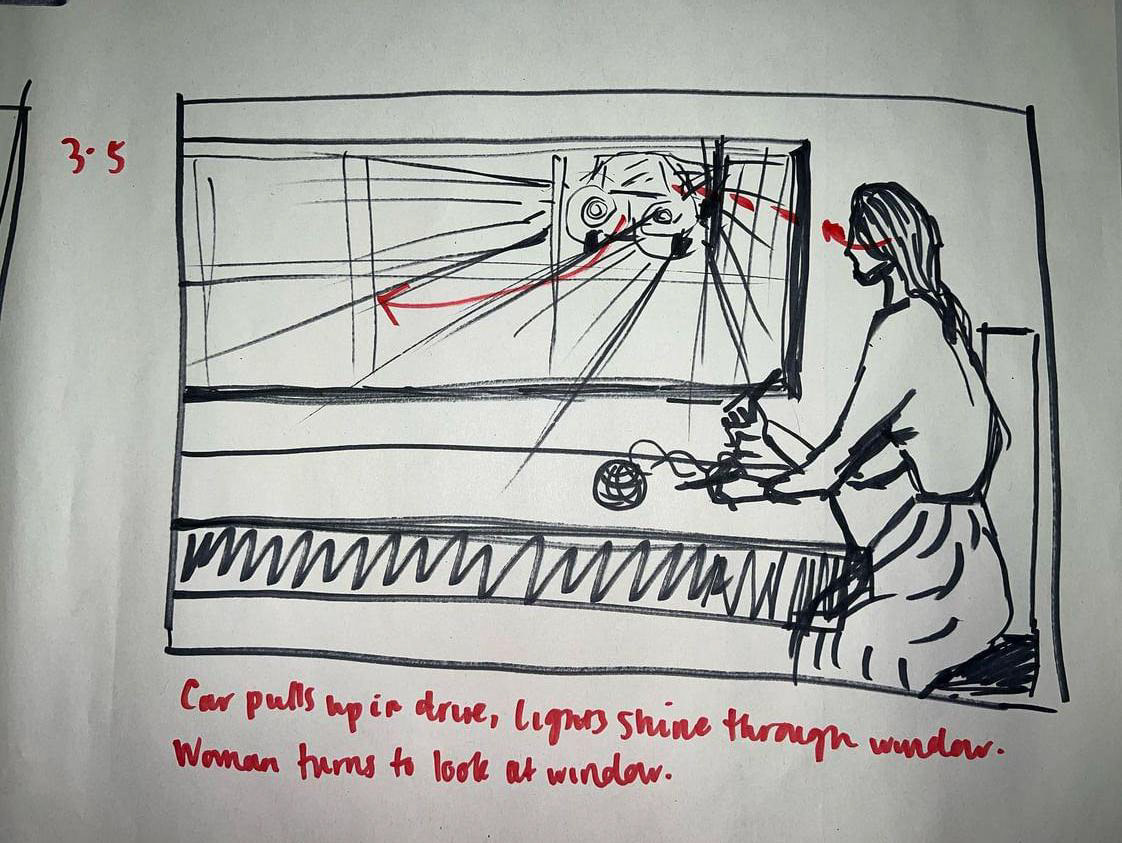 3.5
Car pulls up in drive, lights shine through window.
Woman turns to look at window.